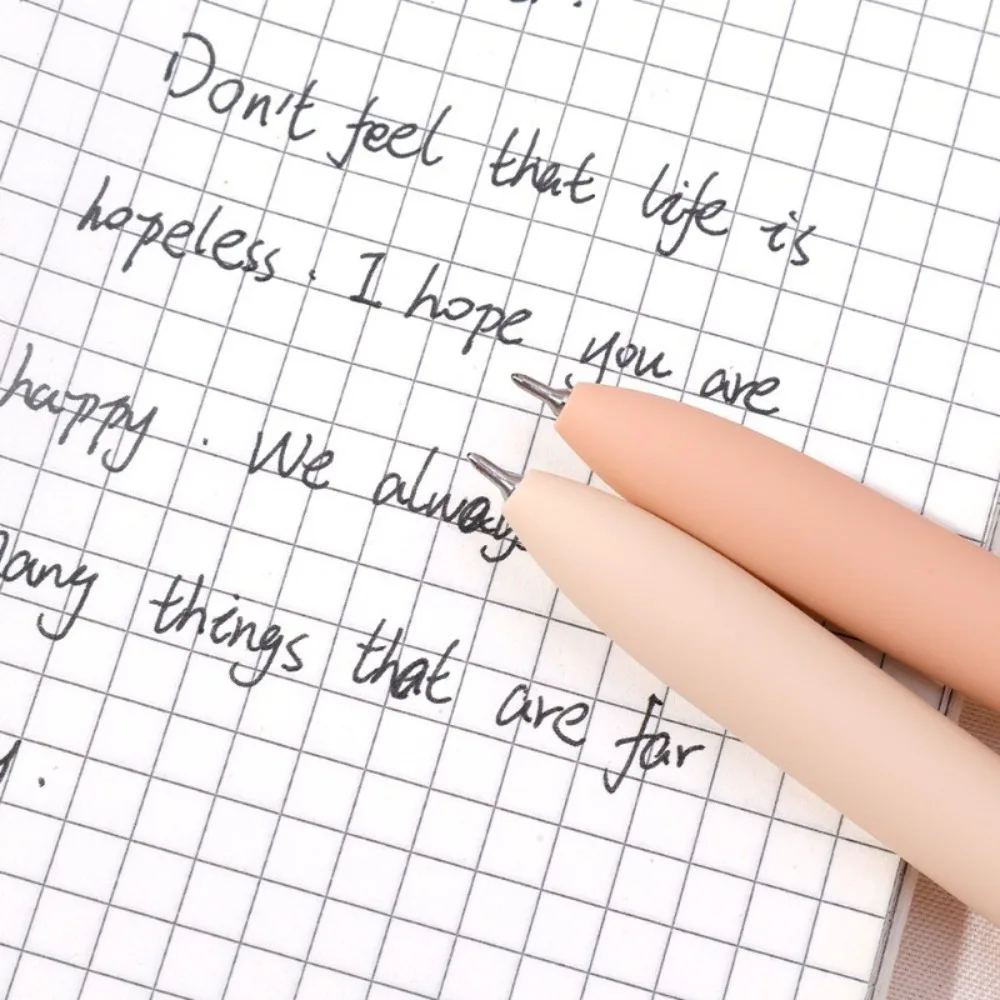 Don't feel that life is
hopeless. I hope you are
happy. We always
things that are far